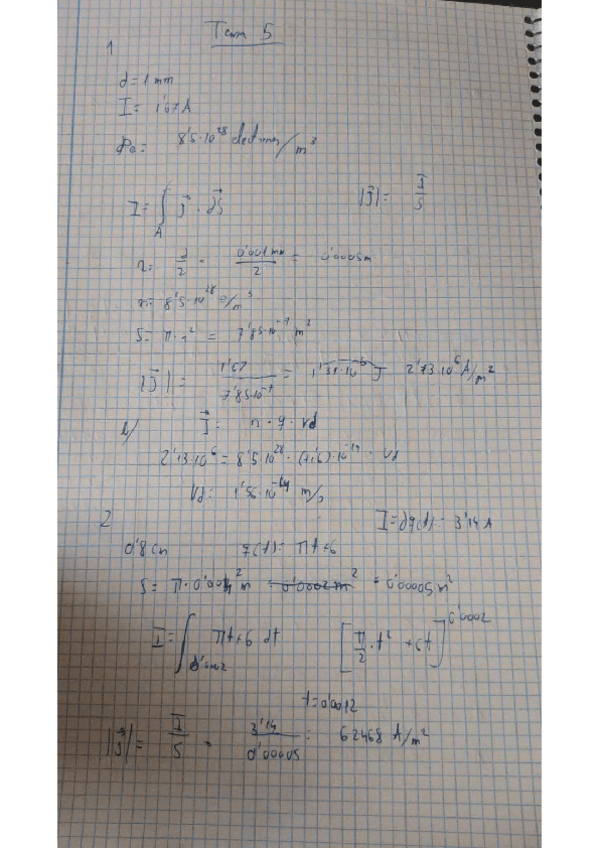 Tema 5
1
d = 1 mm
I = 1'67 A
8'5·10²⁸ electrones/m³
I = ∫_A J⃗ · dS⃗ |J⃗| = I/S
r = d/2 = 0'001 mm/2 = 0'0005 m
n = 8'5·10²⁸ e/m³
S = π·r² = 7'85·10⁻⁷ m²
|J⃗| = 1'67/7'85·10⁻⁷ = 2'13·10⁶ A/m²
b/ J⃗ = n · q · vd
2'13·10⁶ = 8'5·10²⁸ · (1'6)·10⁻¹⁹ · vd
vd = 1'56·10⁻⁴ m/s
2 I = dq(t) = 3'14 A
0'8 cm q(t) = πt+9
S = π·0'004² m = 0'00005 m²
I = ∫ πt+9 dt [π/2 · t² + 6t]^0'0002
t = 0'0012
|J⃗| = I/S = 3'14/0'00005 = 62468 A/m²